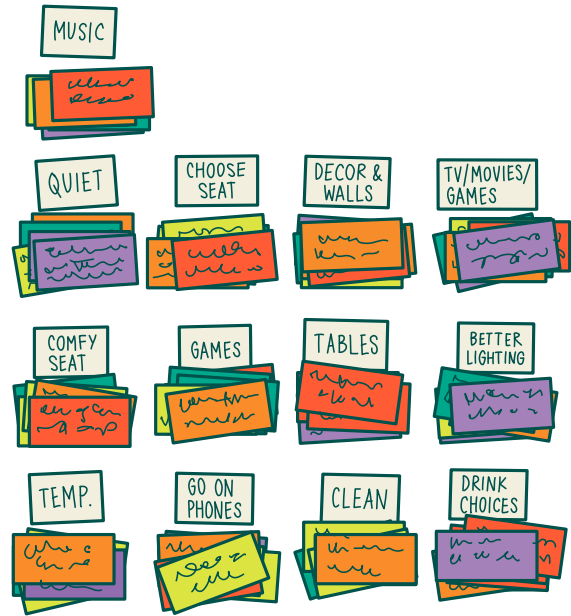 MUSIC
QUIET
CHOOSE
SEAT
DECOR &
WALLS
TV/MOVIES/
GAMES
COMFY
SEAT
GAMES
TABLES
BETTER
LIGHTING
TEMP.
GO ON
PHONES
CLEAN
DRINK
CHOICES